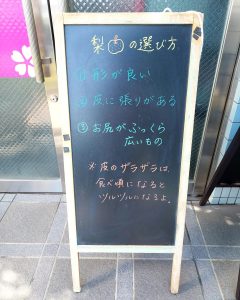 梨の選び方
①形が良い
②皮に張りがある
③お尻がふっくら
広いもの
※皮のザラザラは、
食べ頃になると
ツルツルになるよ。